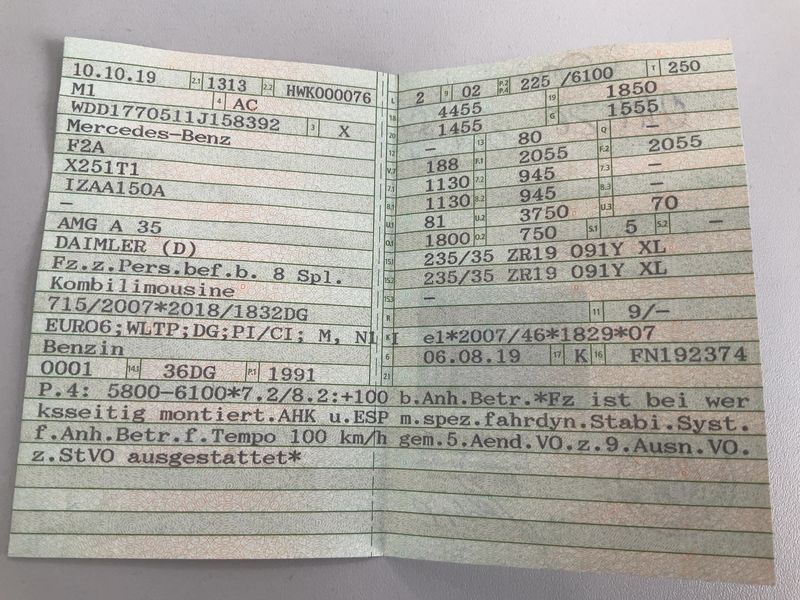 10.10.19 2.1 1313 2.2 HWK000076
M1 4 AC
WDD1770511J158392 3 X
Mercedes-Benz
F2A
X251T1
IZAA150A
–
AMG A 35
DAIMLER (D)
Fz.z.Pers.bef.b. 8 Spl.
Kombilimousine
715/2007*2018/1832DG
EURO6;WLTP;DG;PI/CI; M, N1 I
Benzin
0001 14.1 36DG P.1 1991
L 2 9 02 P.2 P.4 225 /6100 T 250
18 4455 19 1850
20 1455 G 1555
12 – 13 80 Q –
V.7 188 F.1 2055 F.2 2055
7.1 1130 7.2 945 7.3 –
8.1 1130 8.2 945 8.3 –
U.1 81 U.2 3750 U.3 70
O.1 1800 O.2 750 S.1 5 S.2 –
15.1 235/35 ZR19 091Y XL
15.2 235/35 ZR19 091Y XL
15.3 –
R 11 9/–
K e1*2007/46*1829*07
6 06.08.19 17 K 16 FN192374
21
P.4: 5800-6100*7.2/8.2:+100 b.Anh.Betr.*Fz ist bei wer
ksseitig montiert.AHK u.ESP m.spez.fahrdyn.Stabi.Syst.
f.Anh.Betr.f.Tempo 100 km/h gem.5.Aend.VO.z.9.Ausn.VO.
z.StVO ausgestattet*